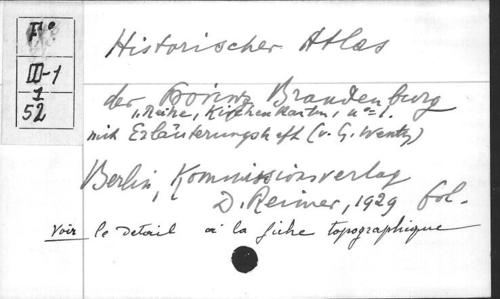 Fº
III-1
1
52
Historischer Atlas
der Provinz Brandenburg
1. Reihe, Kirchenkarten, nº 1.
mit Erläuterungsheft (v. G. Wentz)
Berlin, Kommissionsverlag
D. Reimer, 1929 fol.
Voir le détail à la fiche topographique